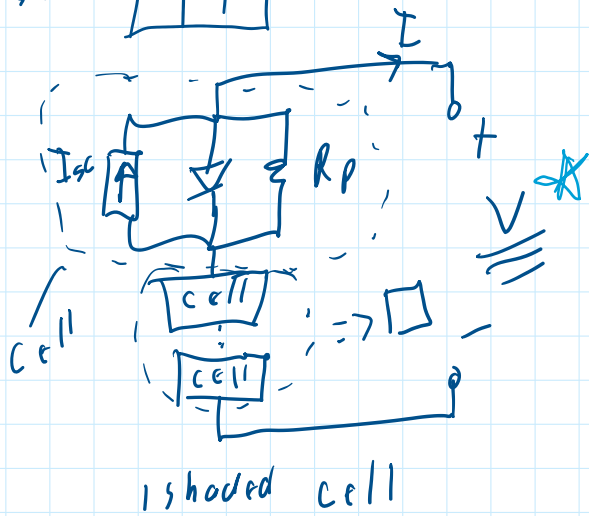 I
+
Isc
Rp
V
cell
=> □
cell
cell
-
1 shaded cell